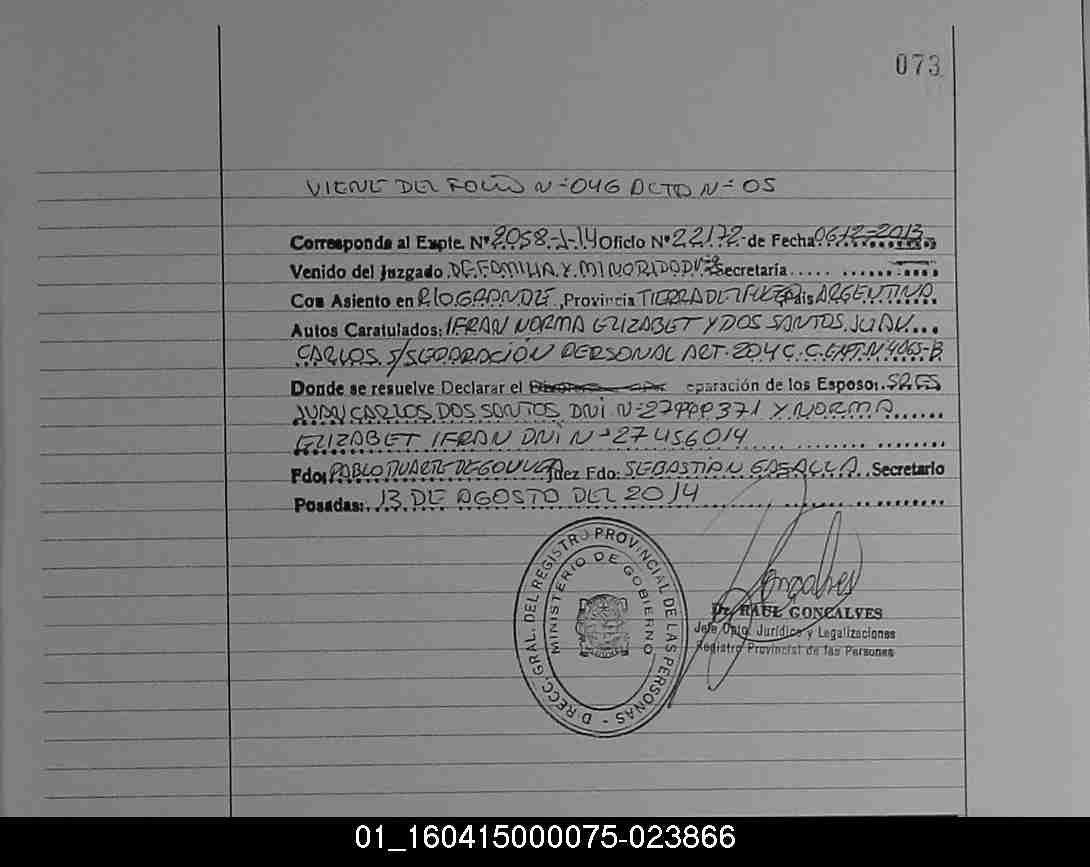 073
VIENE DEL FOLIO Nº 046 ACTA Nº 05
Corresponde al Expte. Nº 2058-J-14 Oficio Nº 22172 de Fecha 06-12-2013
Venido del Juzgado DE FAMILIA Y MINORIDAD Nº 2 Secretaría
Con Asiento en RIO GRANDE, Provincia TIERRA DEL FUEGO País ARGENTINA
Autos Caratulados: IFRAN NORMA ELIZABET Y DOS SANTOS JUAN
CARLOS S/SEPARACIÓN PERSONAL ART. 204 C.C.
Donde se resuelve Declarar el eparación de los Esposos SRES
JUAN CARLOS DOS SANTOS DNI Nº 371 Y NORMA
ELIZABET IFRAN DNI Nº 27456014
Fdo: PABLO DUARTE DE Juez Fdo: SEBASTIAN Secretario
Posadas: 13 DE AGOSTO DEL 2014
DIRECC. GRAL. DEL REGISTRO PROVINCIAL DE LAS PERSONAS -
MINISTERIO DE GOBIERNO
Goncalves
Dr. RAUL GONCALVES
Jefe Dpto. Jurídico y Legalizaciones
Registro Provincial de las Personas
01_160415000075-023866